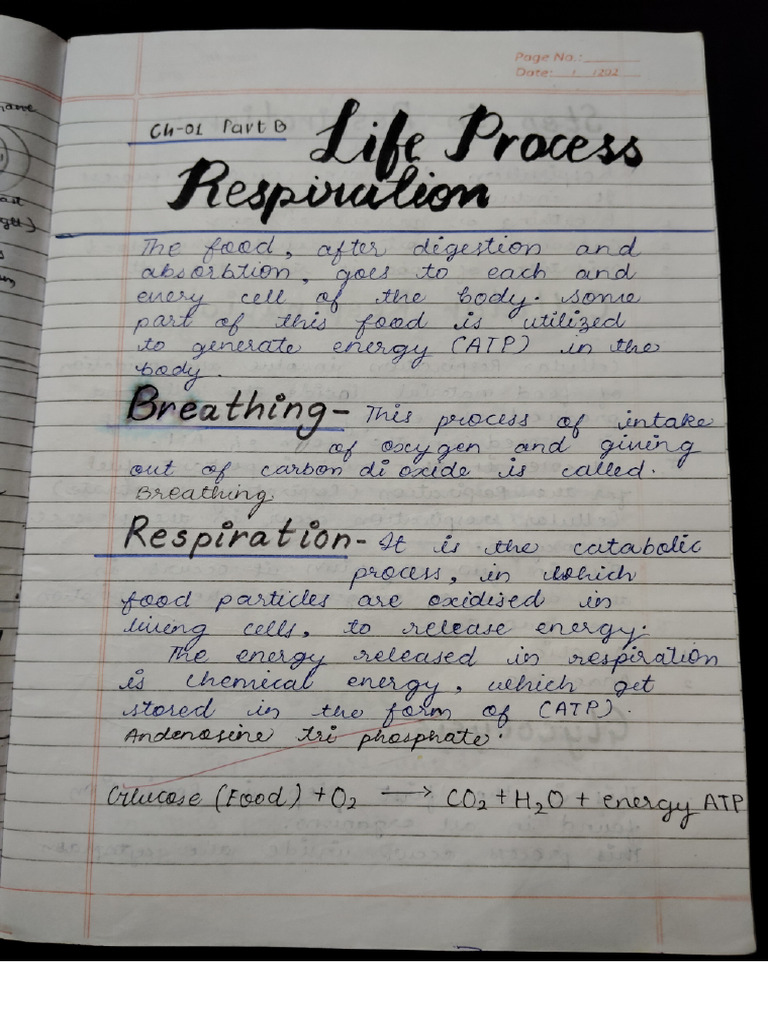 Page No.:
Date: / /202
Ch-01 Part B Life Process
Respiration
The food, after digestion and
absorbtion, goes to each and
every cell of the body. Some
part of this food is utilized
to generate energy (ATP) in the
body.
Breathing- This process of intake
of oxygen and giving
out of carbon di oxide is called.
Breathing.
Respiration- It is the catabolic
process, in which
food particles are oxidised in
living cells, to release energy.
The energy released in respiration
is chemical energy, which get
stored in the form of (ATP).
Andenosine tri phosphate.
Glucose (Food) + O2 ⟶ CO2 + H2O + energy ATP